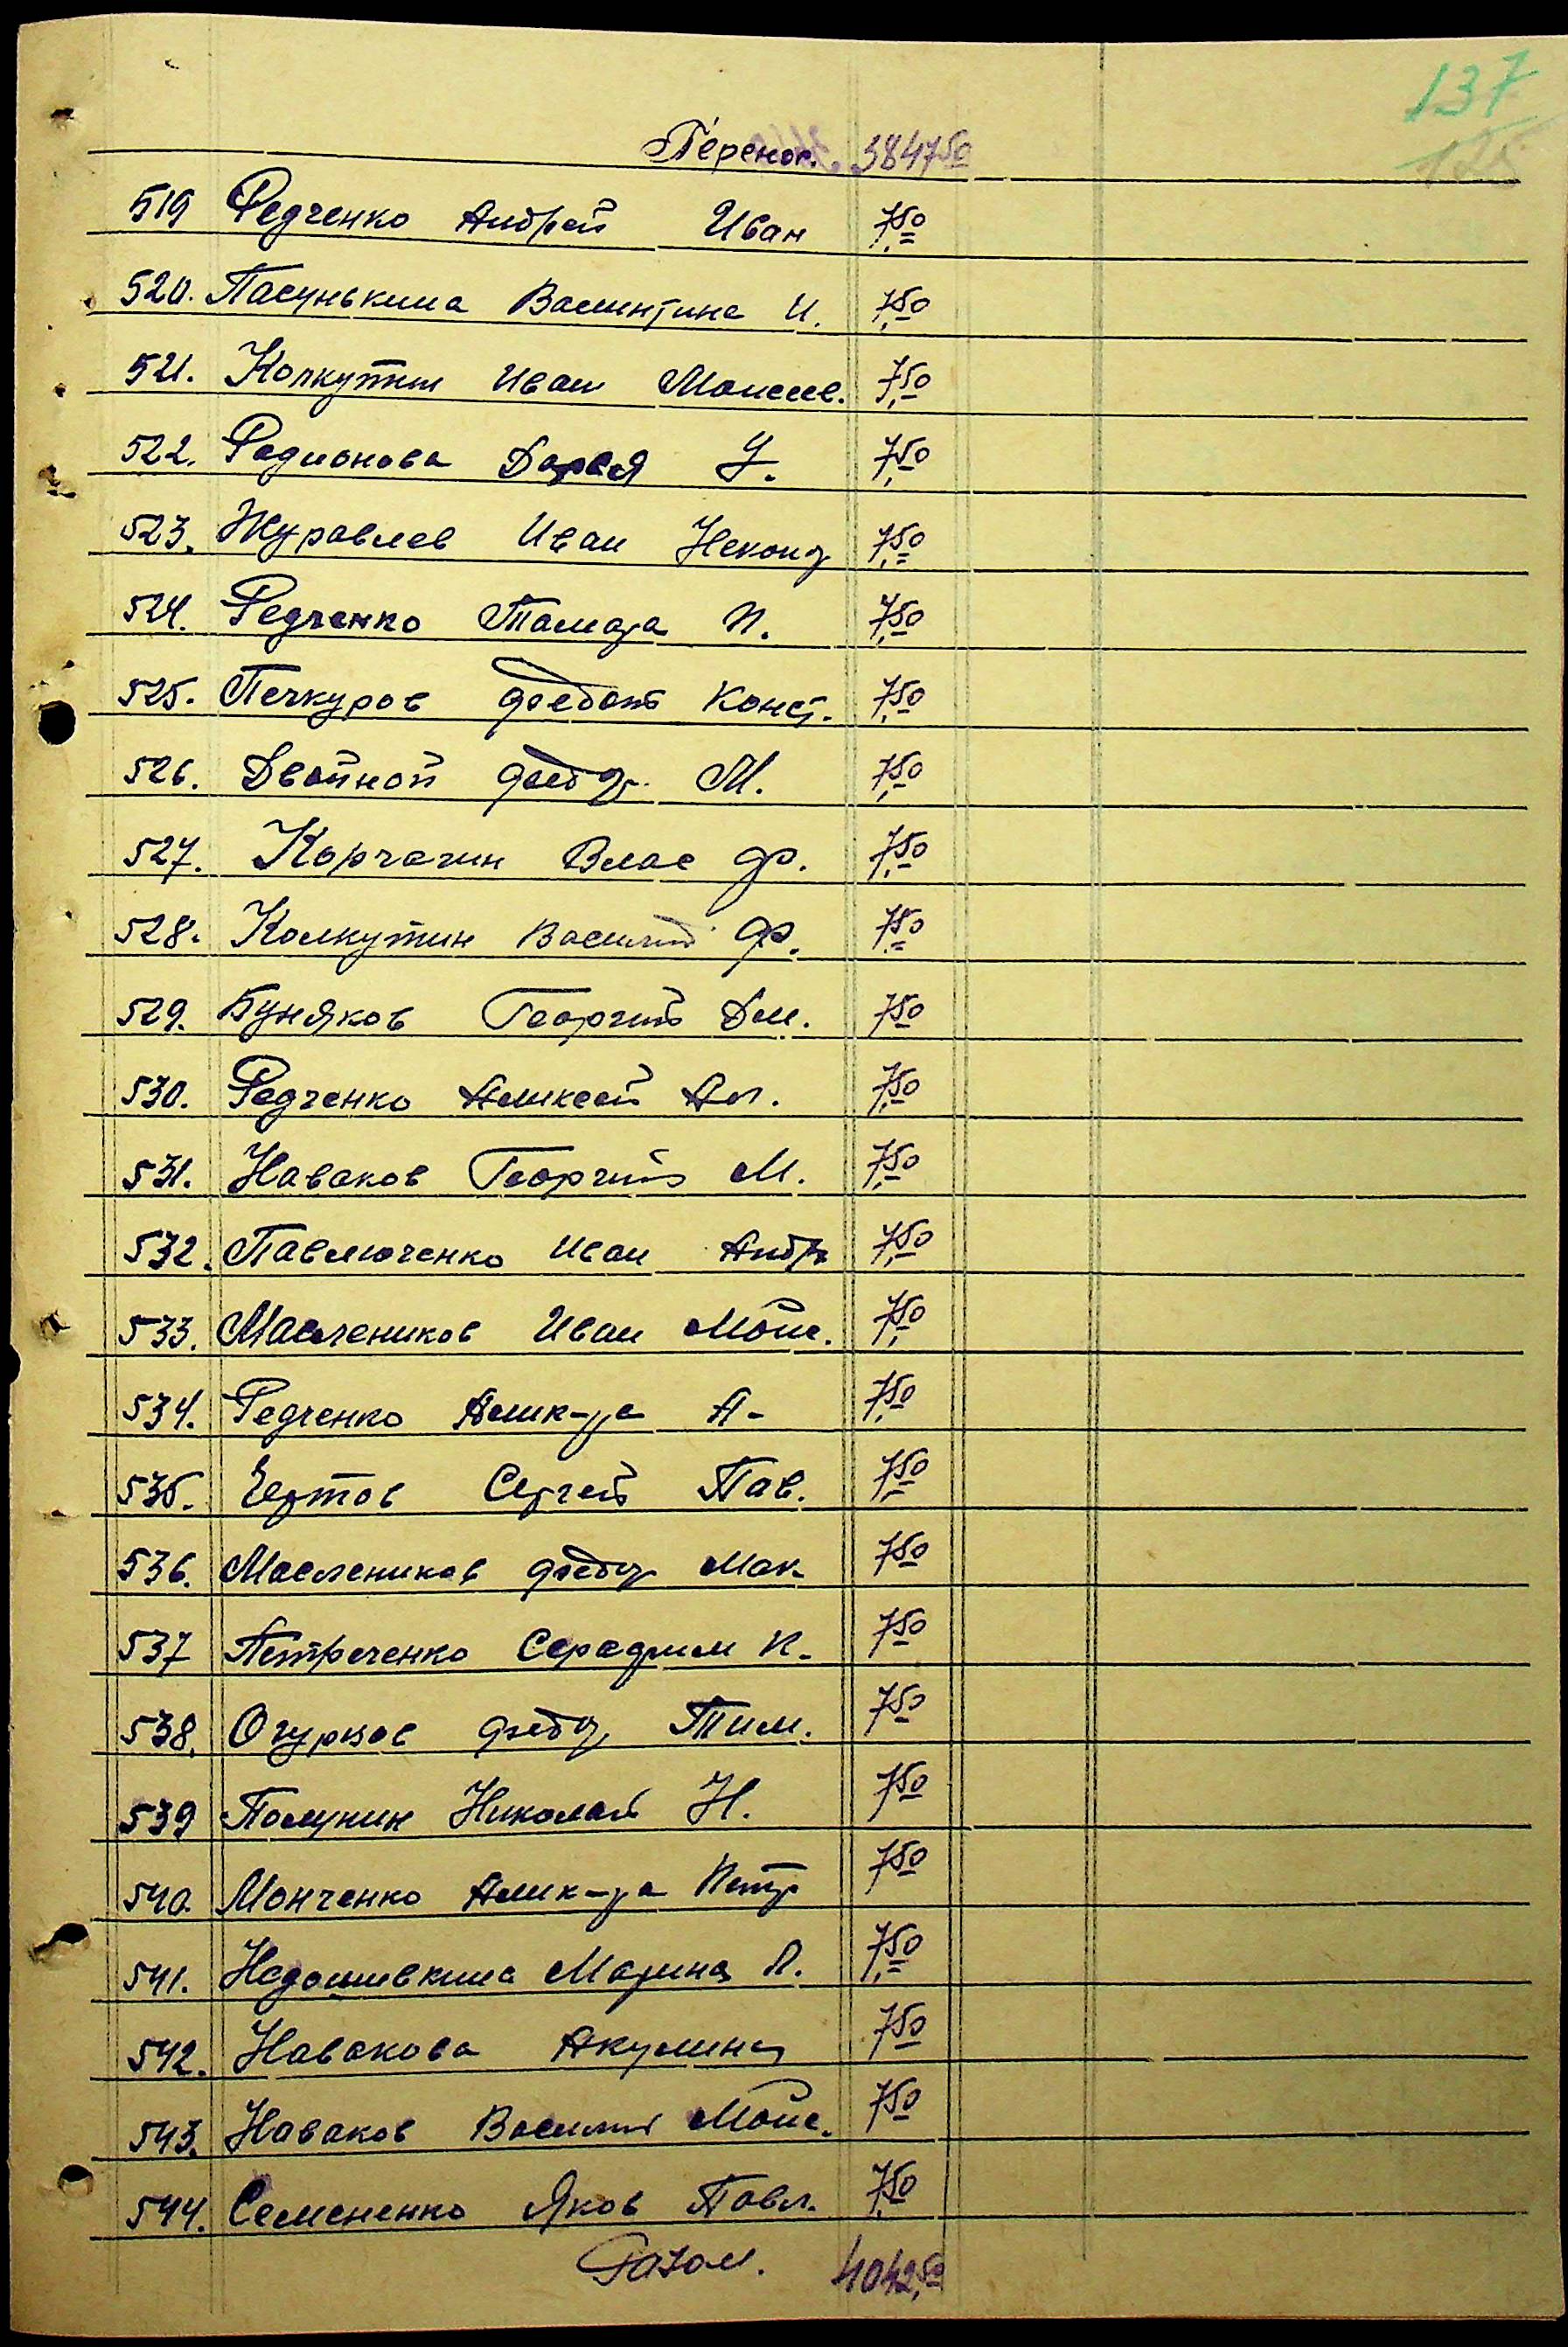 137
Перенос. 3847 50
519 Редченко Андрей Иван 7,50
520. Пасунькина Валентина И. 7,50
521. Колкутин Иван Моисеев. 7,50
522. Родионова Дарья У. 7,50
523. Журавлев Иван Неконд 7,50
524. Редченко Тамара П. 7,50
525. Печкуров Федот Конст. 7,50
526. Двойной Федор М. 7,50
527. Корчагин Влас Ф. 7,50
528. Колкутин Василий Ф. 7,50
529. Буняков Георгий Дм. 7,50
530. Редченко Алексей Ал. 7,50
531. Новаков Георгий М. 7,50
532. Павлюченко Иван Андр 7,50
533. Маслеников Иван Мойс. 7,50
534. Редченко Алек-ра А- 7,50
535. Сергей Пав. 7,50
536. Маслеников Федор Мак 7,50
537 Петреченко Серафим К. 7,50
538. Огурцов Федор Тим. 7,50
539 Полунин Николай Н. 7,50
540. Монченко Алек-ра Петр 7,50
541. Недошивкина Марина П. 7,50
542. Новакова Акулина 7,50
543. Новаков Василий Мойс. 7,50
544. Семененко Яков Павл. 7,50
Разом. 4042,50